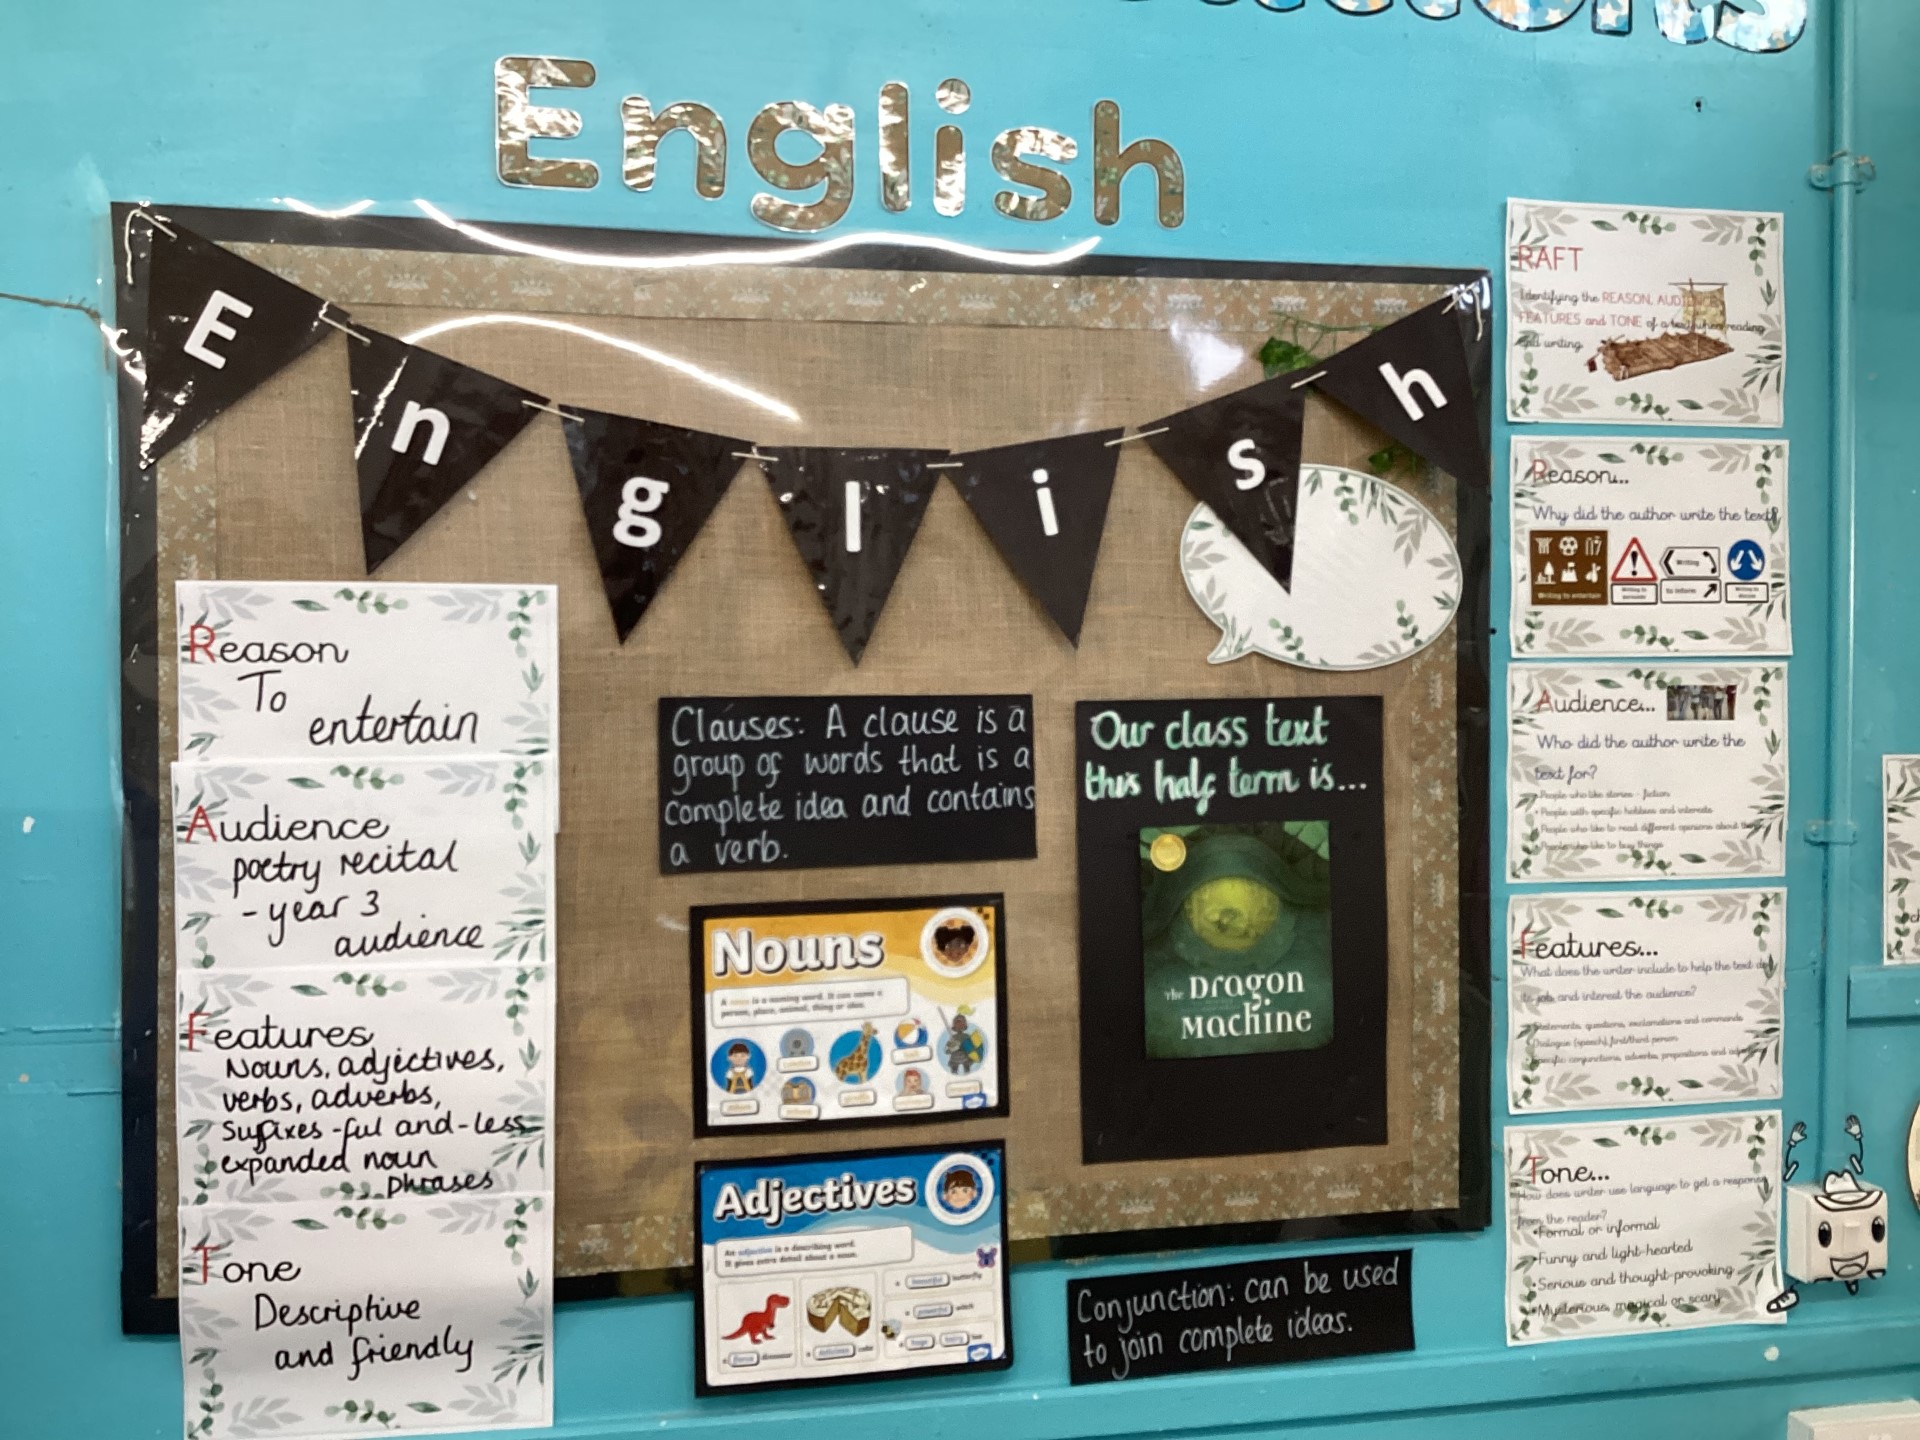 English
E n g l i s h
Reason
To
entertain
Audience
poetry recital
- year 3
audience
Features
Nouns, adjectives,
verbs, adverbs,
Suffixes -ful and -less
expanded noun
phrases
Tone
Descriptive
and friendly
Clauses: A clause is a
group of words that is a
complete idea and contains
a verb.
Nouns
A noun is a naming word. It can name a
person, place, animal, thing or idea.
Adjectives
An adjective is a describing word.
It gives extra detail about a noun.
beautiful butterfly
powerful witch
fierce dinosaur
delicious cake
Our class text
this half term is...
The Dragon
Machine
Conjunction: can be used
to join complete ideas.
RAFT
Identifying the REASON, AUDIENCE,
FEATURES and TONE of a text when reading
and writing.
Reason...
Why did the author write the text?
Writing to entertain
Writing
to inform
Audience...
Who did the author write the
text for?
•People who like stories - fiction
•People with specific hobbies and interests
•People who like to read different opinions about
•People who like to buy things
Features...
What does the writer include to help the text do
its job and interest the audience?
Statements, questions, exclamations and commands
Dialogue (speech), first/third person
Specific conjunctions, adverbs, prepositions and
Tone...
How does writer use language to get a response
from the reader?
•Formal or informal
•Funny and light-hearted
•Serious and thought-provoking
•Mysterious, magical or scary